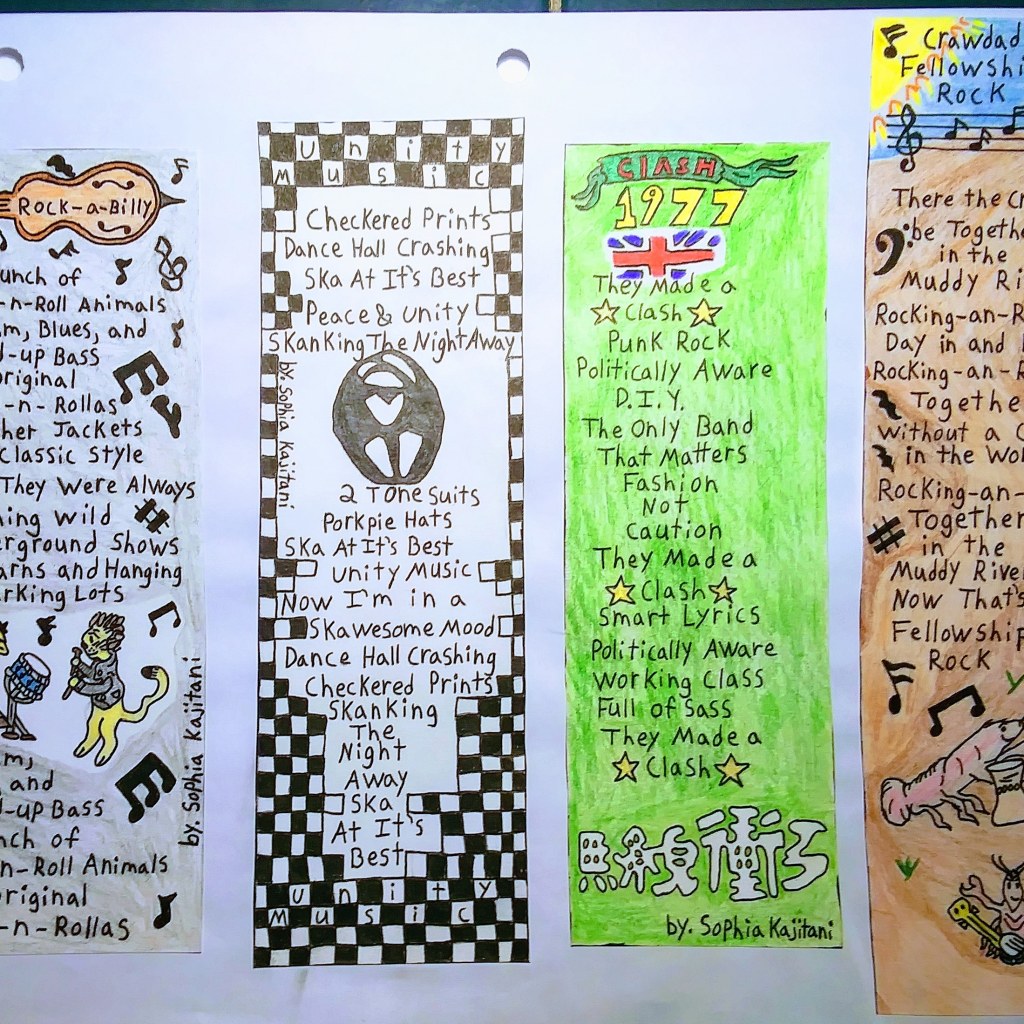 ROCK-a-Billy
unch of
-n-Roll Animals
m, Blues, and
d-up Bass
riginal
-n-Rollas
her Jackets
Classic Style
They Were Always
ing Wild
erground Shows
arns and Hanging
rking Lots
m,
and
d-up Bass
nch of
-n-Roll Animals
riginal
-n-Rollas
by. Sophia Kajitani
unity
music
Checkered Prints
Dance Hall Crashing
Ska At It's Best
Peace & unity
Skanking The Night Away
by. Sophia Kajitani
2 Tone Suits
Porkpie Hats
Ska At It's Best
unity Music
Now I'm in a
Skawesome Mood
Dance Hall Crashing
Checkered Prints
Skanking
The
Night
Away
Ska
At It's
Best
unity
music
CLASH
1977
They Made a
Clash
Punk Rock
Politically Aware
D.I.Y.
The Only Band
That Matters
Fashion
Not
Caution
They Made a
Clash
Smart Lyrics
Politically Aware
Working Class
Full of Sass
They Made a
Clash
by. Sophia Kajitani
Crawdad
Fellowshi
Rock
There the Cr
be Togethe
in the
Muddy Ri
Rocking-an-R
Day in and
Rocking-an-R
Togethe
Without a C
in the Wor
Rocking-an-
Together
in the
Muddy River
Now That's
Fellowship
Rock